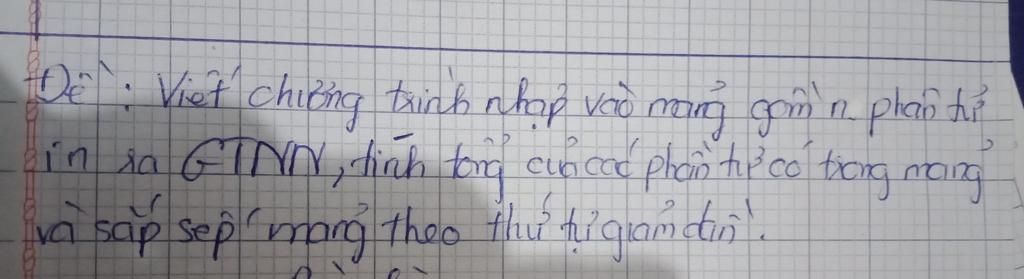 Đề: Viết chương trình nhập vào mảng gồm n phần tử
in ra GTNN, tính tổng của các phần tử có trong mảng
và sắp sếp mảng theo thứ tự giảm dần.